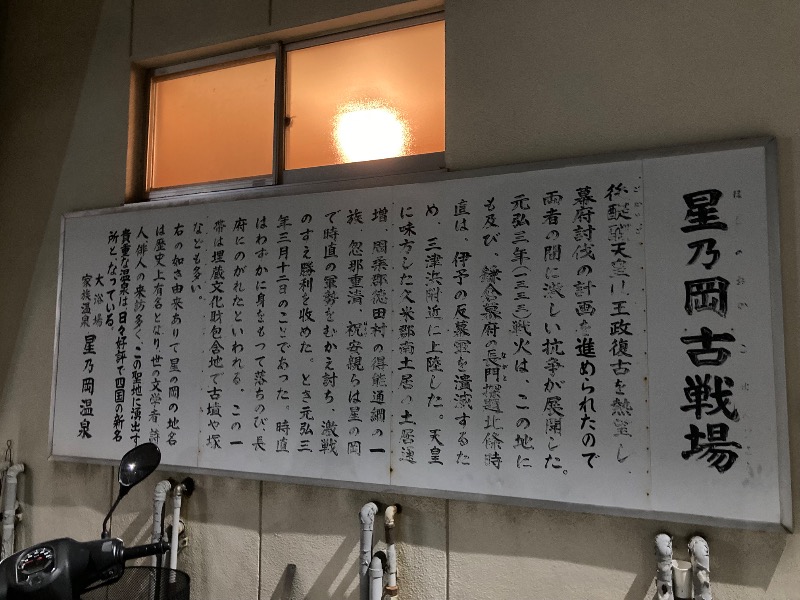 星乃岡古戦場
後醍醐天皇は、王政復古を熱望し、
幕府討伐の計画を進められたので
両者の間に激しい抗争が展開した。
元弘三年(一三三三)戦火は、この地に
も及び、鎌倉幕府の長門探題北條時
直は、伊予の反幕軍を潰滅するた
め、三津浜附近に上陸した。天皇
に味方した久米郡南土居の土居通
増、周桑郡徳田村の得能通綱の一
族、忽那重清、祝安親らは星の岡
で時直の軍勢をむかえ討ち、激戦
のすえ勝利を收めた。とき元弘三
年三月十二日のことであった。時直
はわずかに身をもって落ちのび、長
府にのがれたといわれる。この一
帯は埋蔵文化財包含地で古墳や塚
なども多い。
右の如き由来ありて星の岡の地名
は歴史上有名となり世の文学者、詩
人、俳人の来訪多く、この聖地に湧出す
貴重な温泉は日々好評で四国の新名
所となっている。
大浴場
家族温泉
星乃岡温泉